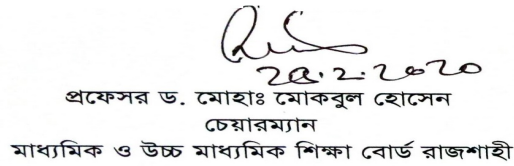 2.2020
প্রফেসর ড. মোহাঃ মোকবুল হোসেন
চেয়ারম্যান
মাধ্যমিক ও উচ্চ মাধ্যমিক শিক্ষা বোর্ড রাজশাহী